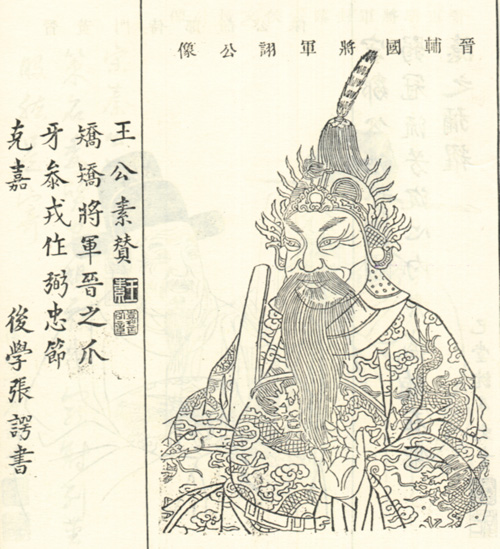 晉輔國將軍詡公像
王公素贊
矯矯將軍晉之爪
牙叅戎作弼忠節
克嘉 後學張諤書